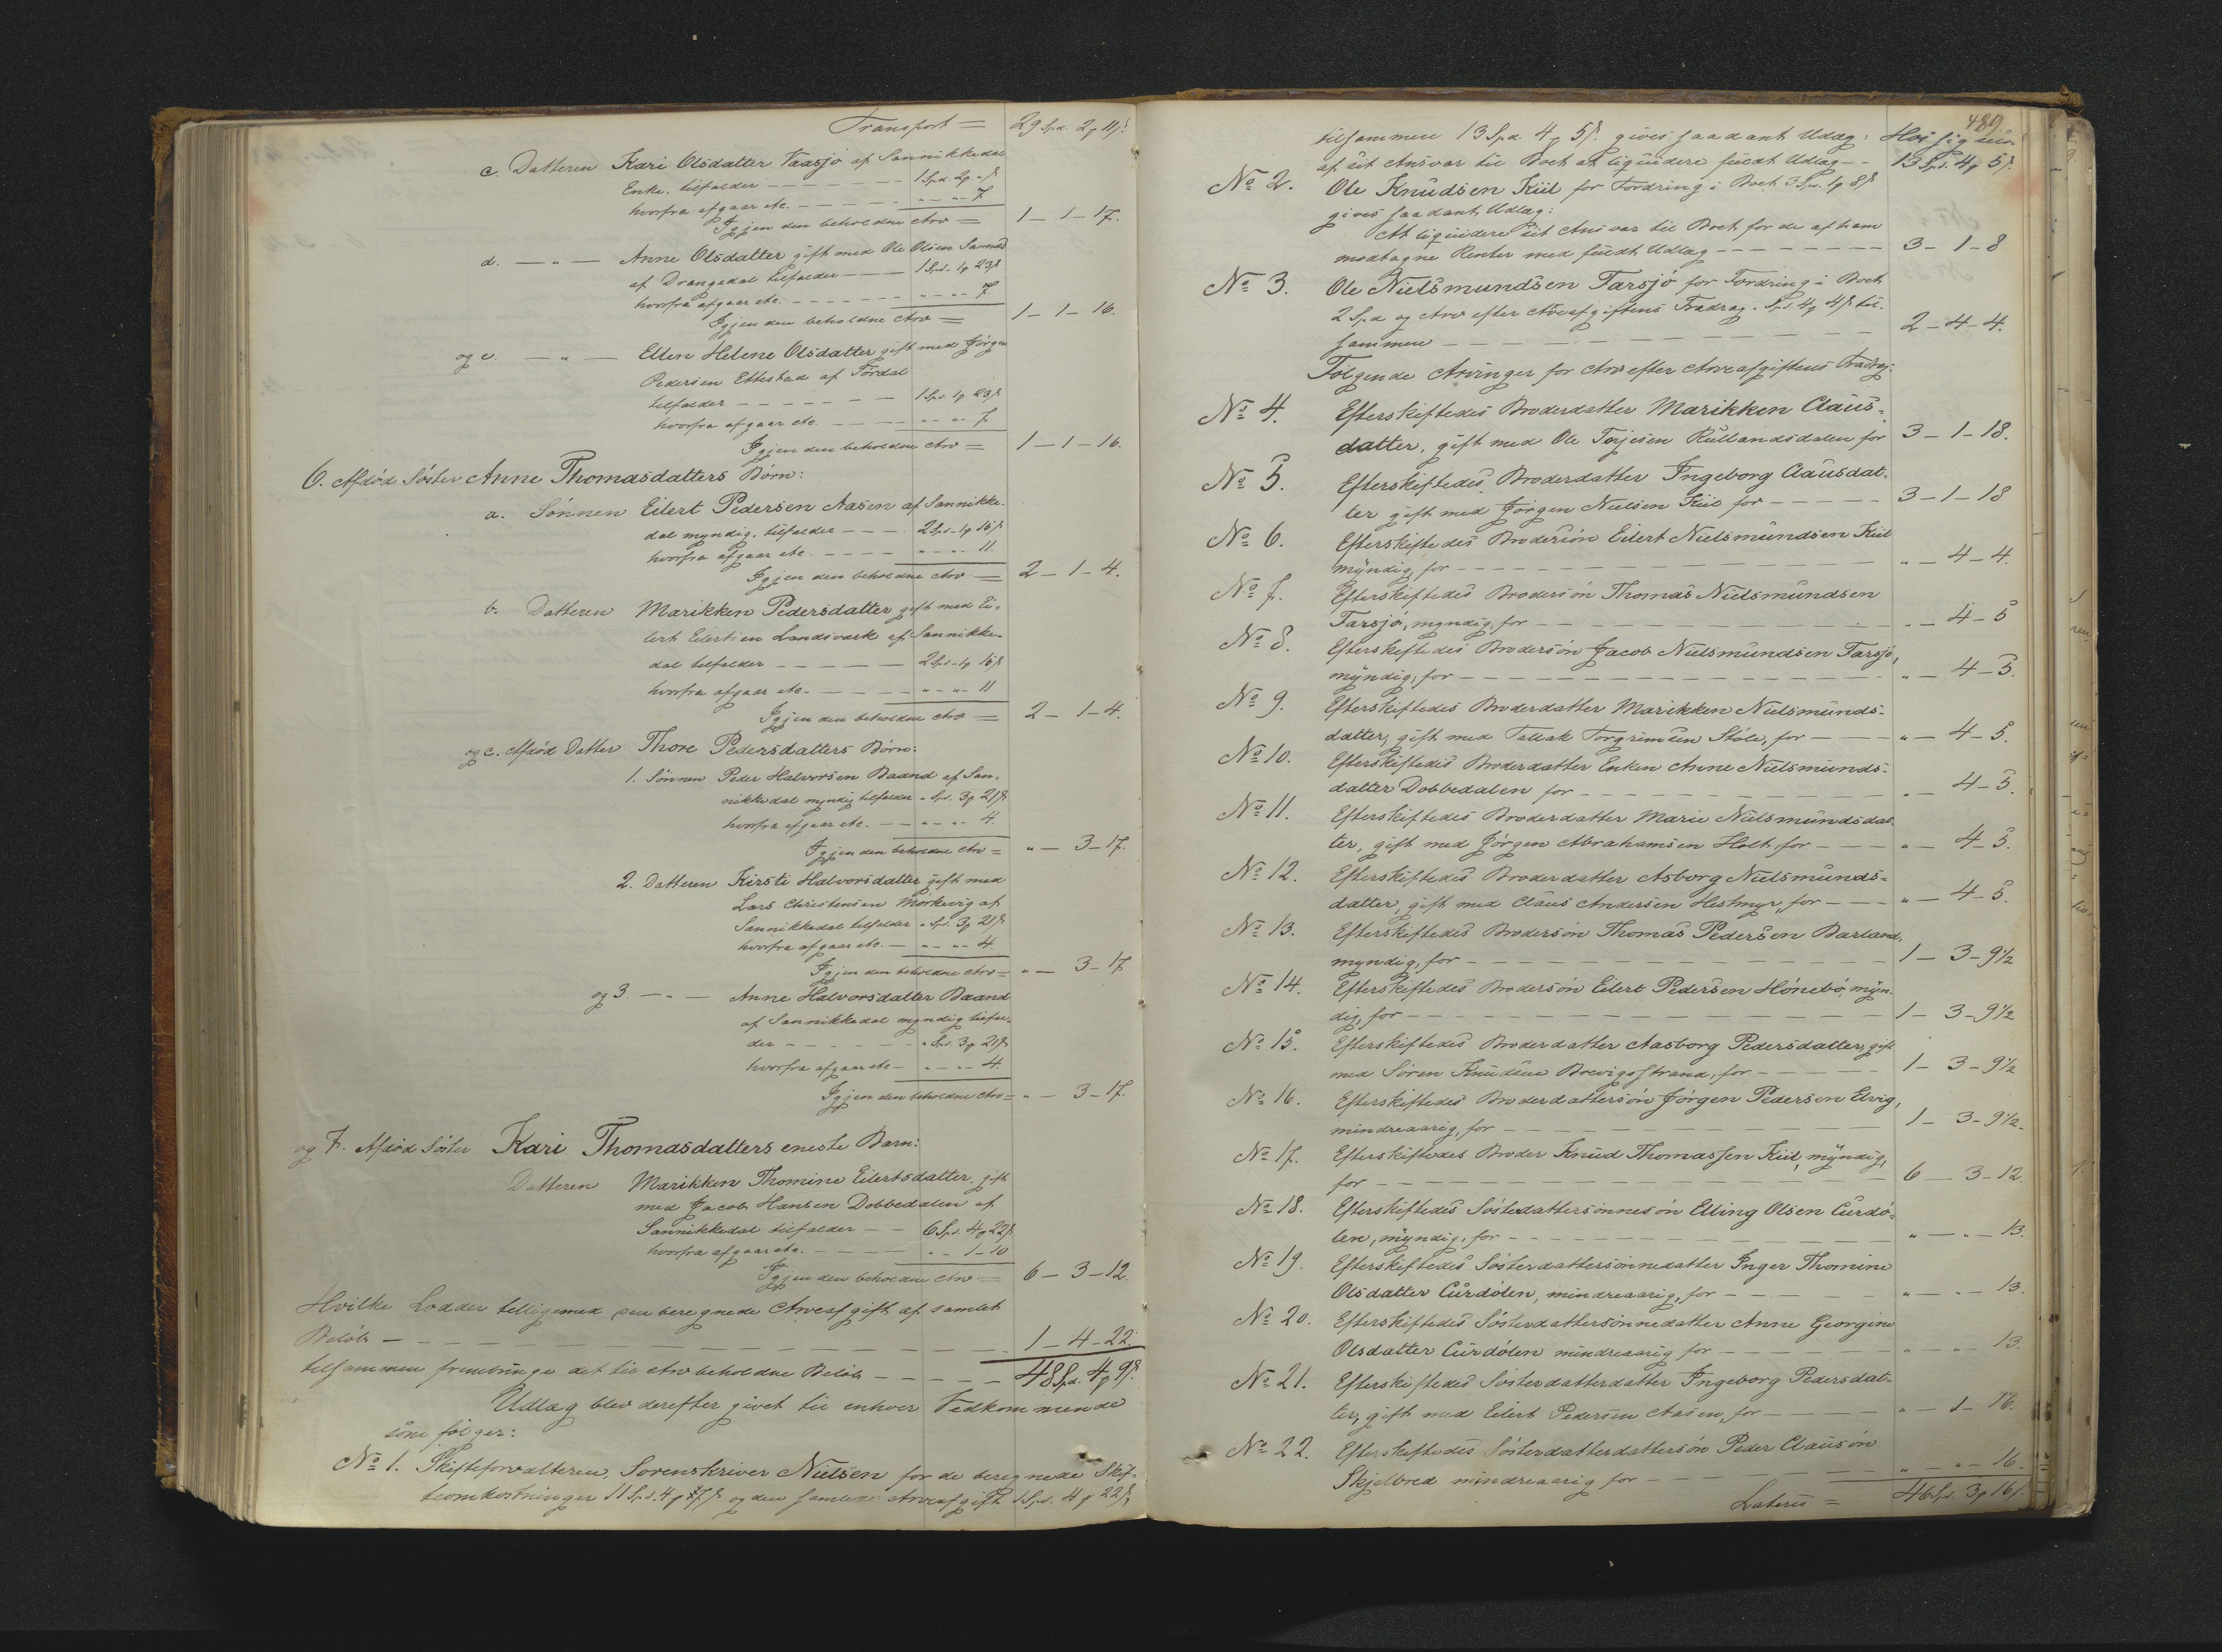 Transport = 29 Spd. 2 ȹ 11 ß.
c. Datteren Kari Olsdatter Vaasjø af Sannikkedal
Enke, tilfalder - - - 1 Spd. 2 ȹ " ß
hvorfra afgaar etc. - - - " - " - 7
Igjen den beholdne Arv = 1 - 1 - 17.
d. - " - Anne Olsdatter gift med Ole Olsen
af Drangedal tilfalder - - 1 Spd. 1 ȹ 23 ß
hvorfra afgaar etc. - - - " - " - 7
Igjen den beholdne Arv = 1 - 1 - 16.
og e. - " - Ellen Helene Olsdatter gift med Jørgen
Pedersen Ettestad af Tørdal
tilfalder - - - 1 Spd. 1 ȹ 23 ß
hvorfra afgaar etc. - - - " - " - 7
Igjen den beholdne Arv = 1 - 1 - 16.
6. Afdød Søster Anne Thomasdatters Børn:
a. Sønnen Eilert Pedersen Aasen af Sannikke-
dal myndig, tilfalder - - - 2 Spd. 1 ȹ 15 ß
hvorfra afgaar etc. - - - " - " - 11.
Igjen den beholdne Arv = 2 - 1 - 4.
b. Datteren Marikken Pedersdatter gift med Ei-
lert Eilertsen Landsverk af Sannikke-
dal tilfalder - - - 2 Spd. 1 ȹ 15 ß
hvorfra afgaar etc. - - - " - " - 11
Igjen den beholdne Arv = 2 - 1 - 4.
og c. Afdød Datter Thore Pedersdatters Børn:
1. Sønnen Peder Halvorsen Baand af San-
nikkedal myndig tilfalder " Spd. 3 ȹ 21 ß
hvorfra afgaar etc. - - " - " - 4.
Igjen den beholdne Arv = " - 3 - 17.
2. Datteren Kirsti Halvorsdatter gift med
Lars Christensen Mørkevig af
Sannikkedal tilfalder " Spd. 3 ȹ 21 ß
hvorfra afgaar etc. - " - " - 4.
Igjen den beholdne Arv = " - 3 - 17
og 3. - " - Anne Halvorsdatter Baand
af Sannikkedal myndig tilfal-
der - - - " Spd. 3 ȹ 21 ß
hvorfra afgaar etc - " - " - 4.
Igjen den beholdne Arv = " - 3 - 17.
og 7. Afdød Søster Kari Thomasdatters eneste Barn:
Datteren Marikken Thomine Eilertsdatter, gift
med Jacob Hansen Dobbedalen af
Sannikkedal tilfalder - - 6 Spd. 4 ȹ 22 ß
hvorfra afgaar etc. - - - " - 1 - 10
Igjen den beholdne Arv = 6 - 3 - 12.
Hvilke Lodder tilligemed den beregnede Arveafgift af samlet
Beløb - - - 1 - 4 - 22.
tilsammen frembringe det til Arv beholdne Beløb - - - 48 Spd. 4 ȹ 9 ß.
Udlæg blev derefter givet til enhver Vedkommende
som følger:
No 1. Skifteforvalteren, Sorenskriver Nielsen for de beregnede Skif-
teomkostninger 11 Spd. 4 ȹ 7 ß og den samlede Arveafgift 1 Spd. 4 ȹ 22 ß,
489
tilsammen 13 Spd. 4 ȹ 5 ß. gives saadant Udlæg:
af sit Ansvar til Boet at liquidere fuldt Udlæg - - 13 Spd. 4 ȹ 5 ß.
No 2. Ole Knudsen Kiil for Fordring i Boet 3 Spd. 1 ȹ 8 ß
gives saadant Udlæg:
At liquidere sit Ansvar til Boet for de af ham
modtagne Renter med fuldt Udlæg - - - 3 - 1 - 8
No 3. Ole Nielsmundsen Farsjø for Fordring i Boet
2 Spd. og Arv efter Arveafgiftens Fradrag " Spd. 4 ȹ 4 ß til-
sammen - - - 2 - 4 - 4.
Følgende Arvinger for Arv efter Arveafgiftens Fradrag:
No 4. Efterskiftedes Broderdatter Marikken Claus-
datter, gift med Ole Terjesen Rullandsdalen for 3 - 1 - 18.
No 5. Efterskiftedes Broderdatter Ingeborg Clausdat-
ter gift med Jørgen Nielsen Kiil for - - - 3 - 1 - 18
No 6. Efterskiftedes Brodersøn Eilert Nielsmundsen Kiil
myndig, for - - - " - 4 - 4.
No 7. Efterskiftedes Brodersøn Thomas Nielsmundsen
Farsjø, myndig, for - - - " - 4 - 5
No 8. Efterskiftedes Brodersøn Jacob Nielsmundsen Farsjø,
myndig, for - - - " - 4 - 5.
No 9. Efterskiftedes Broderdatter Marikken Nielsmunds-
datter, gift med Tallak Torgrimsen Støle, for - - - " - 4 - 5.
No 10. Efterskiftedes Broderdatter Enken Anne Nielsmunds-
datter Dobbedalen for - - - " - 4 - 5.
No 11. Efterskiftedes Broderdatter Marie Nielsmundsdat-
ter, gift med Jørgen Abrahamsen Holt, for - - - " - 4 - 5.
No 12. Efterskiftedes Broderdatter Asborg Nielsmunds-
datter, gift med Claus Andersen Hestmyr, for - - - " - 4 - 5.
No 13. Efterskiftedes Brodersøn Thomas Pedersen Barland,
myndig, for - - - 1 - 3 - 9 1/2
No 14. Efterskiftedes Brodersøn Eilert Pedersen Hønebø, myn-
dig, for - - - 1 - 3 - 9 1/2
No 15. Efterskiftedes Broderdatter Aasborg Pedersdatter, gift
med Søren Knudsen Brevigsstrand, for - - - 1 - 3 - 9 1/2
No 16. Efterskiftedes Broderdattersøn Jørgen Pedersen Elvig,
mindreaarig, for - - - 1 - 3 - 9 1/2.
No 17. Efterskiftedes Broder Knud Thomassen Kiil, myndig,
for - - - 6 - 3 - 12.
No 18. Efterskiftedes Søsterdattersønnesøn Elling Olsen Curdø-
len, myndig, for - - - " - " - 13.
No 19. Efterskiftedes Søsterdattersønnedatter Inger Thomine
Olsdatter Curdølen, mindreaarig, for - - - " - " - 13.
No 20. Efterskiftedes Søsterdattersønnedatter Anne Georgine
Olsdatter Curdølen mindreaarig for - - - " - " - 13.
No 21. Efterskiftedes Søsterdatterdatter Ingeborg Pedersdat-
ter, gift med Eilert Pedersen Aasen, for - - - " - 1 - 16.
No 22. Efterskiftedes Søsterdatterdattersøn Peder Claussøn
Skjelbred mindreaarig for - - - " - " - 16.
Lateris = 46 Spd. 3 ȹ 16 ß.